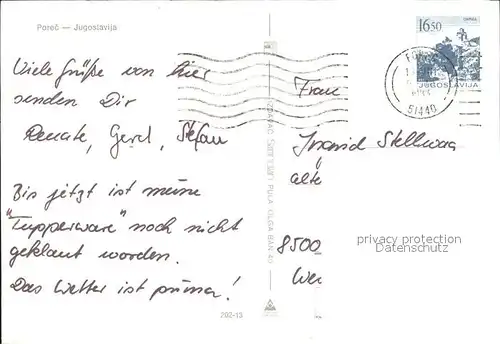 Poreč — Jugoslavija
Viele Grüße von hier
senden Dir
Renate, Gerd, Stefan
Bis jetzt ist meine
"Tupperware" noch nicht
geklaut worden.
Das Wetter ist prima!
202-13
16.50
JUGOSLAVIJA
51440
Frau
Ingrid Stellwag
alte
8500
privacy protection
AnsichtskartenKönig.de